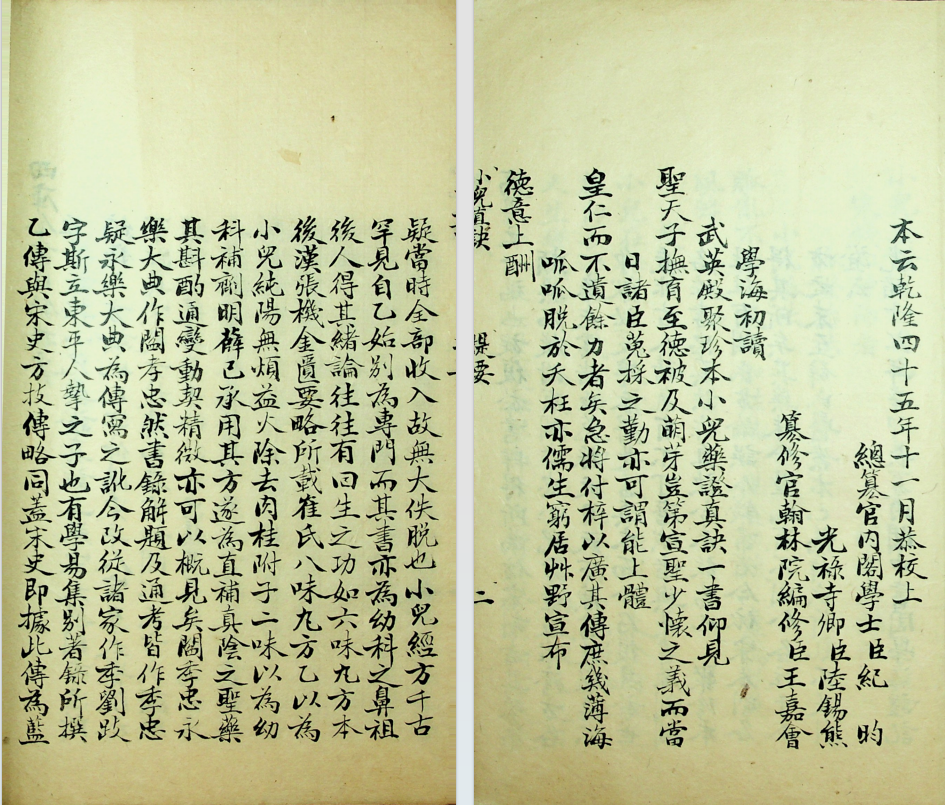 疑當時全部收入故無大佚脫也小兒經方千古
罕見自乙始別為專門而其書亦為幼科之鼻祖
後人得其緒論往往有回生之功如六味丸方本
後漢張機金匱要略所載崔氏八味丸方乙以為
小兒純陽無煩益火除去肉桂附子二味以為幼
科補劑明薛己承用其方遂為直補真陰之聖藥
其斟酌通變動契精微亦可以概見矣閻季忠永
樂大典作閻孝忠然書錄解題及通考皆作季忠
疑永樂大典為傳寫之訛今改從諸家作季劉跂
字斯立東平人摯之子也有學易集別著錄所撰
乙傳與宋史方技傳略同蓋宋史即據此傳為藍
本云乾隆四十五年十一月恭校上
總纂官內閣學士臣紀昀
光祿寺卿臣陸錫熊
纂修官翰林院編修臣王嘉會
學海初讀
武英殿聚珍本小兒藥證真訣一書仰見
聖天子撫育至德被及萌芽豈第宣聖少懷之義而當
日諸臣蒐採之勤亦可謂能上體
皇仁而不遺餘力者矣急將付梓以廣其傳庶幾薄海
呱呱脫於夭枉亦儒生窮居艸野宣布
德意上酬
小兒直訣 提要 二